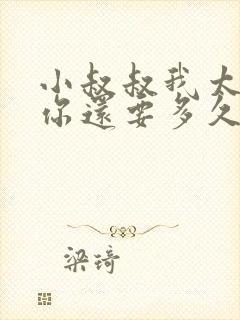 小叔叔我太
你還要多久
梁琦